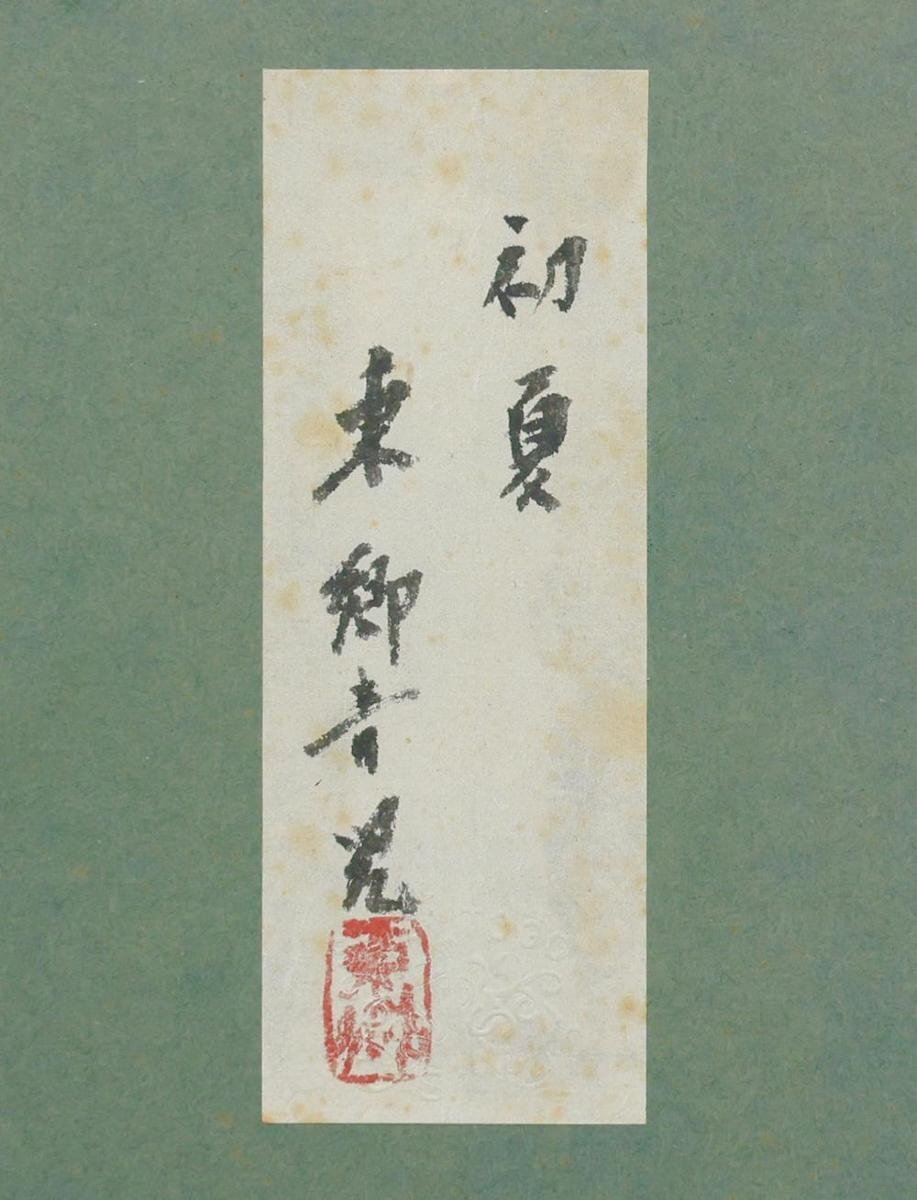 初夏
東郷青児